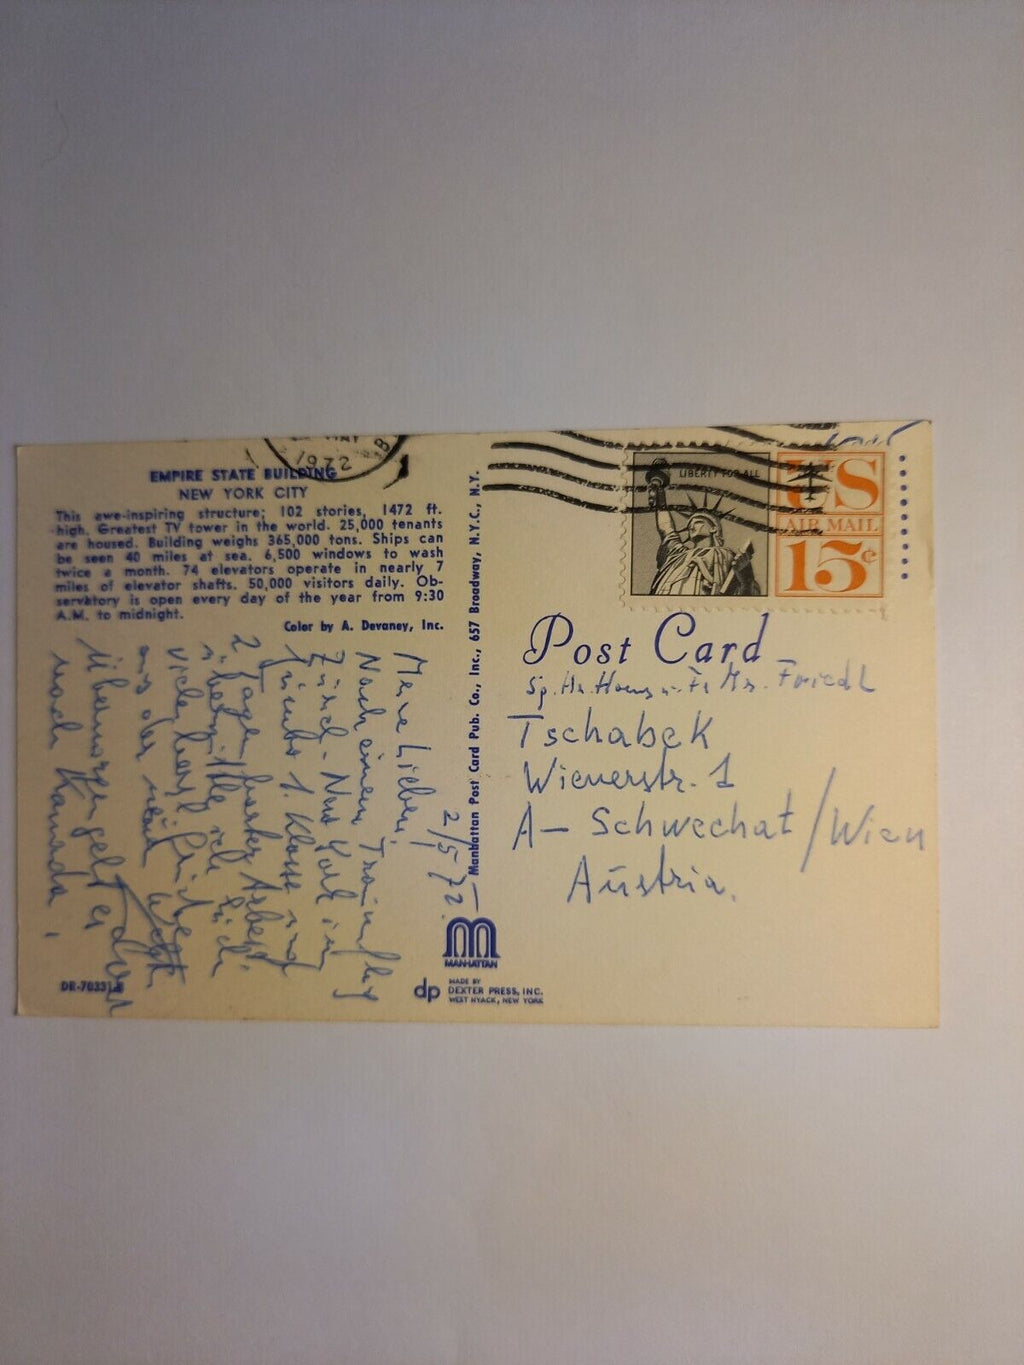 MAY
1972
B
EMPIRE STATE BUILDING
NEW YORK CITY
This awe-inspiring structure; 102 stories, 1472 ft.
high. Greatest TV tower in the world. 25,000 tenants
are housed. Building weighs 365,000 tons. Ships can
be seen 40 miles at sea. 6,500 windows to wash
twice a month. 74 elevators operate in nearly 7
miles of elevator shafts. 50,000 visitors daily. Ob-
servatory is open every day of the year from 9:30
A.M. to midnight.
Color by A. Devaney, Inc.
2/5/72.
Meine Lieben!
Nach einem Traumflug
Zürich - New York im
Jumbo 1. Klasse und
2 Tagen harter Arbeit
viele herzl. Grüsse
aus der neuen Welt
Übermorgen geht es dann
nach Kanada.
DR-70331-B
Manhattan Post Card Pub. Co., Inc., 657 Broadway, N.Y.C., N.Y.
MANHATTAN
dp
MADE BY
DEXTER PRESS, INC.
WEST NYACK, NEW YORK
LIBERTY FOR ALL
US
AIR MAIL
15¢
Post Card
Friedl
Tschabek
Wienerstr. 1
A- Schwechat/Wien
Austria.